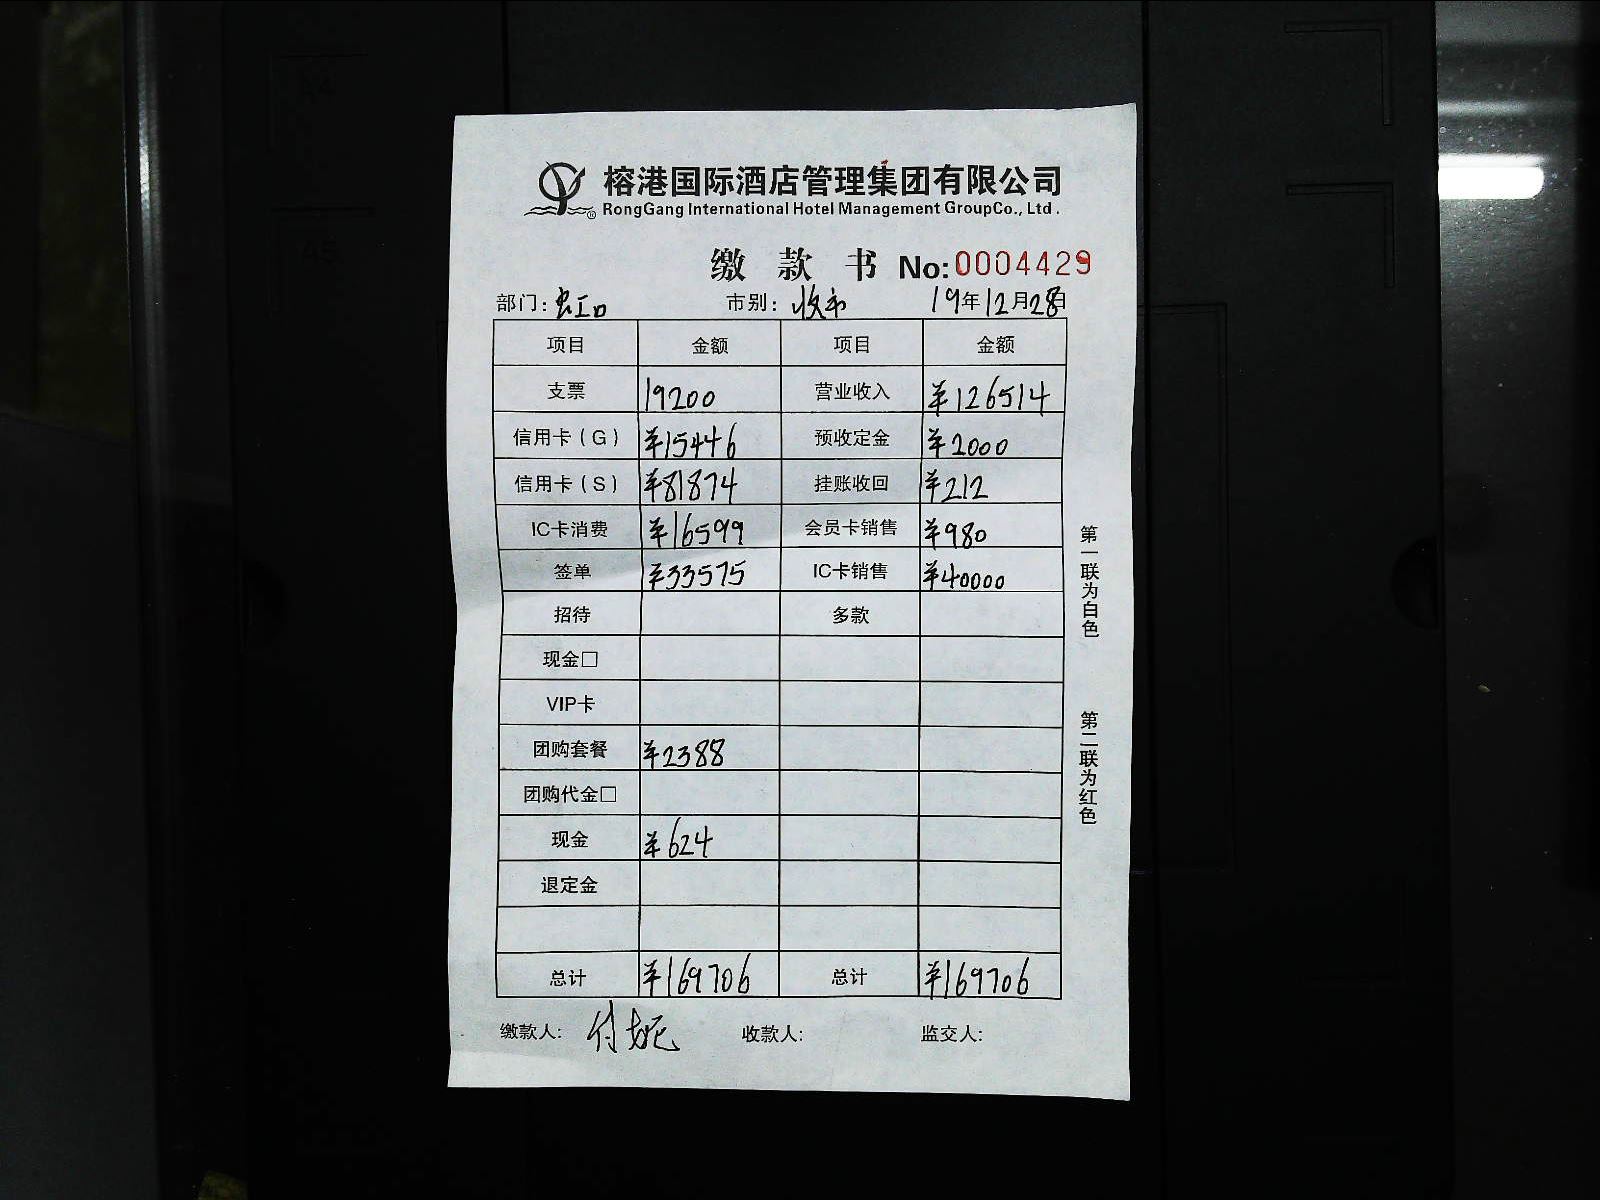 榕港国际酒店管理集团有限公司
RongGang International Hotel Management GroupCo., Ltd.
缴 款 书 No:0004429
部门: 虹口 市别: 收市 19年12月28日
项目 金额 项目 金额
支票 19200 营业收入 ¥126514
信用卡(G) ¥15446 预收定金 ¥2000
信用卡(S) ¥81874 挂账收回 ¥212
IC卡消费 ¥16599 会员卡销售 ¥980
签单 ¥33575 IC卡销售 ¥40000
招待 多款
现金□
VIP卡
团购套餐 ¥2388
团购代金□
现金 ¥624
退定金
总计 ¥169706 总计 ¥169706
缴款人: 付 收款人: 监交人:
第一联为白色
第二联为红色